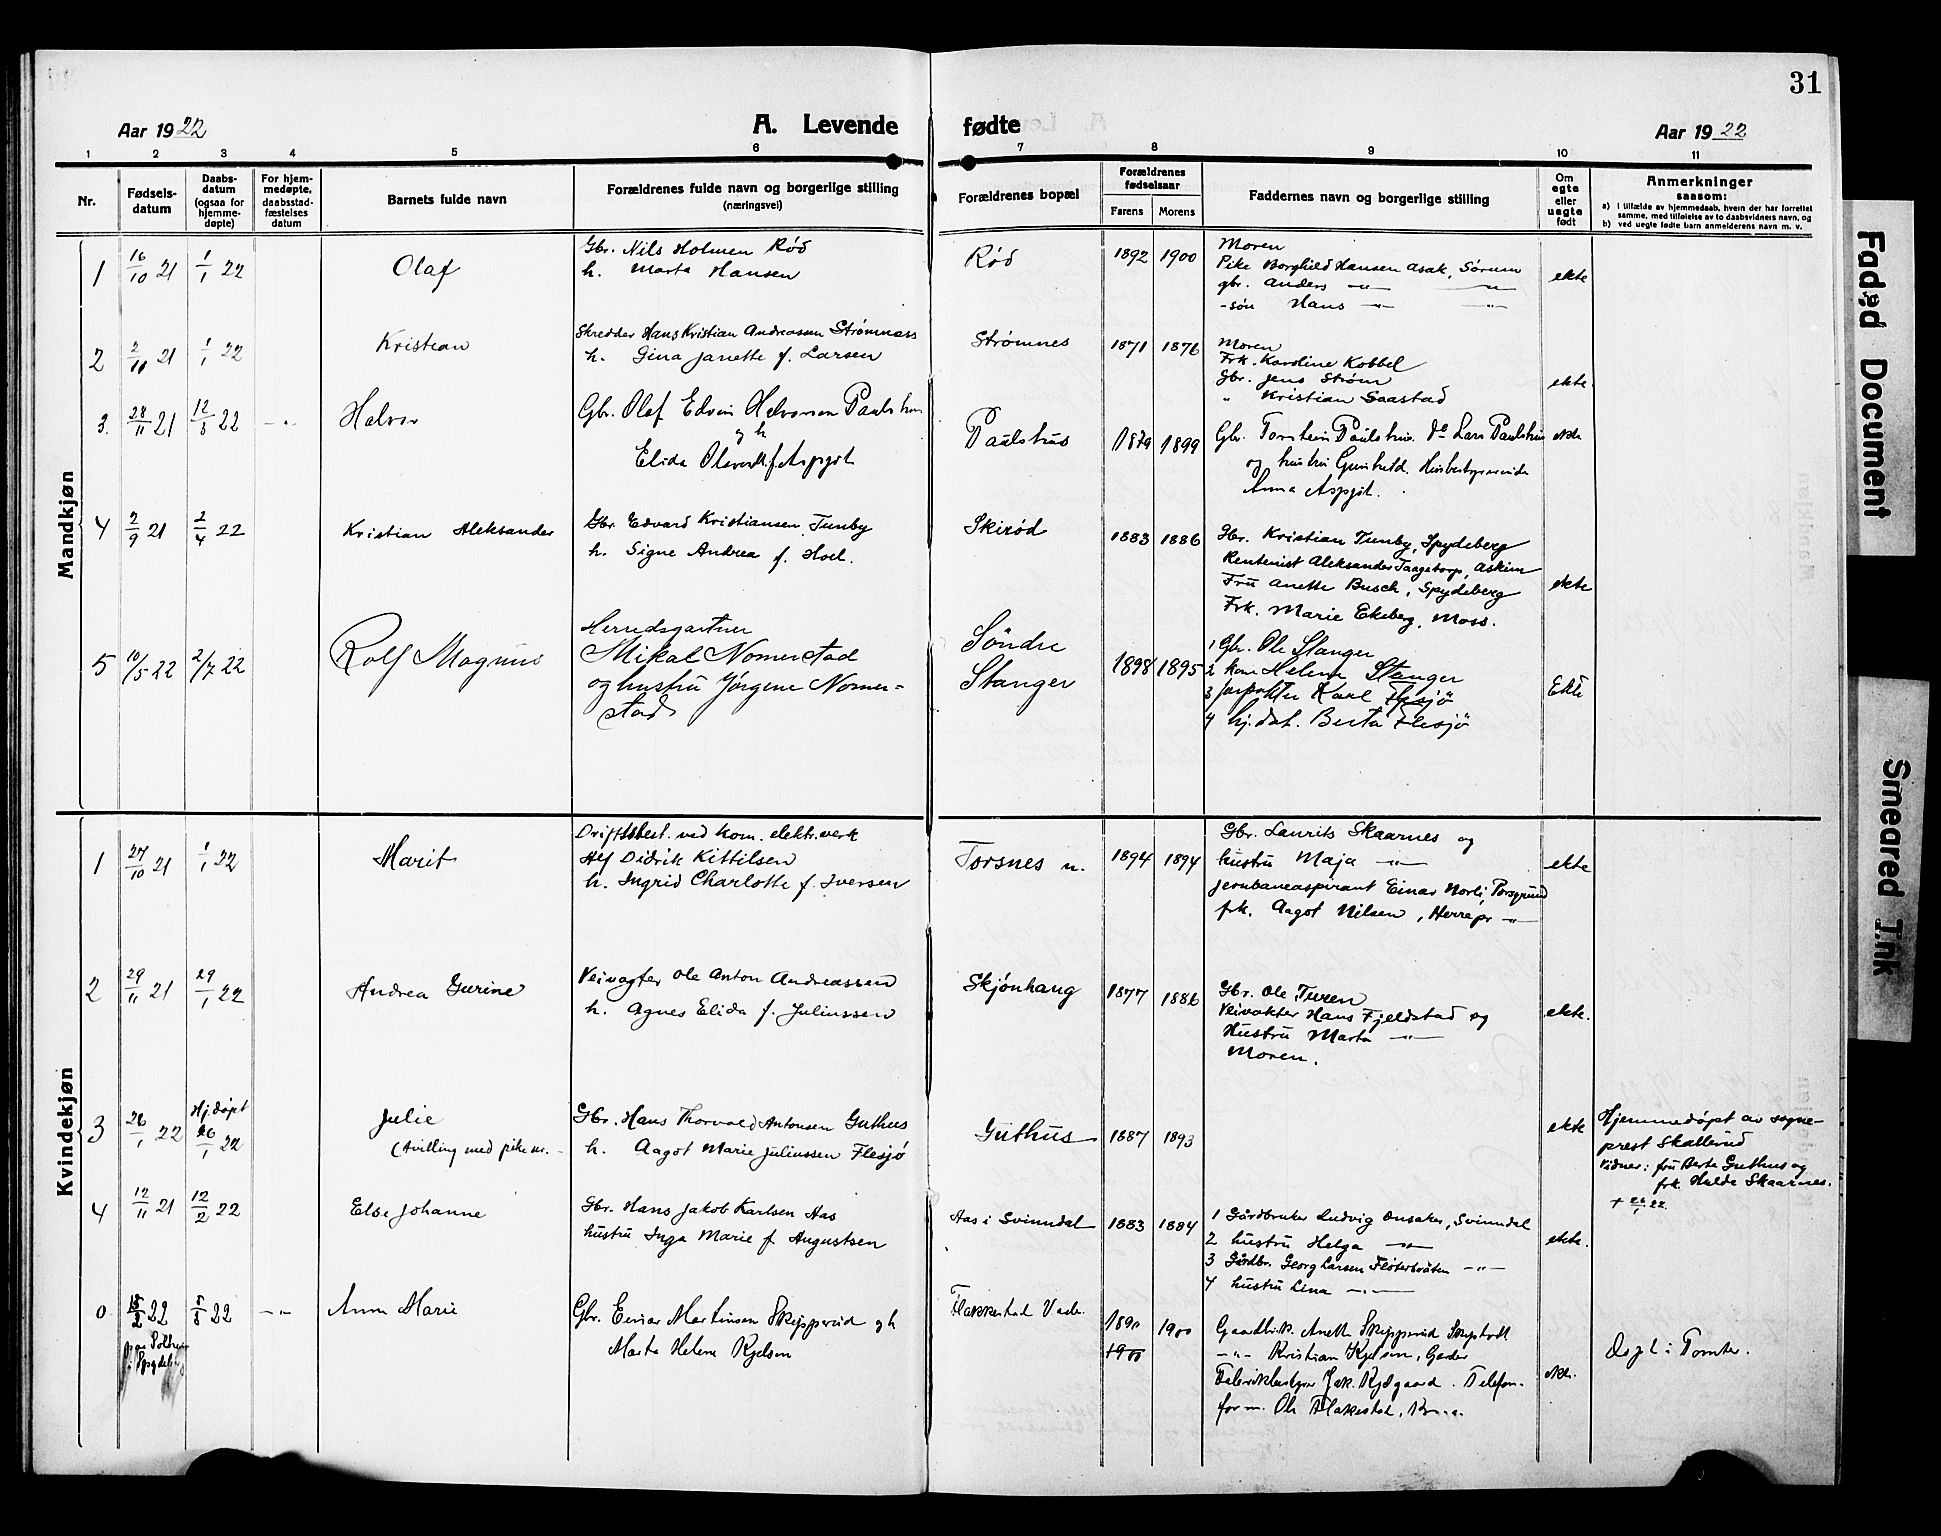 31
Aar 1922
A. Levende fødte
Aar 1922
1 2 3 4 5 6 7 8 9 10 11
Nr.
Fødsels-
datum
Daabs-
datum
(ogsaa for
hjemme-
døpte)
For hjem-
medøpte,
daabsstad-
fæstelses
datum
Barnets fulde navn
Forældrenes fulde navn og borgerlige stilling
(næringsvei)
Forældrenes bopæl
Forældrenes
fødselsaar
Farens Morens
Faddernes navn og borgerlige stilling
Om
egte
eller
uegte
født
Anmerkninger
saasom:
a) i tilfælde av hjemmedaab, hvem der har forrettet
samme, med tilføielse av to daabsvidners navn, og
b) ved uegte fødte barn anmelderens navn m. v.
Mandkjøn
1 16/10 21 1/1 22 Olaf
Gbr. Nils Holmen Rød
h. Marta Hansen
Rød 1892 1900
Moren
Pike Borghild Hansen Asak, Sørum
gbr. Anders -"- -"-
-søn Hans -"- -"-
ekte
2 2/10 21 1/1 22 Kristian
Skredder Hans Kristian Andreassen Strømnæss
h. Gina Janette f. Larsen
Strømnes 1871 1876
Moren
Frk. Karoline Kobbel
Gbr. Jens Strøm
" Kristian Saastad
ekte
3. 28/11 21 12/3 22 -"- Halvor
Gbr. Olaf Edvin Halvorsen Paulshus
og h
Elida f. Aspgjøt
Paulshus 1879 1899
Gbr. Torstein Paulshus. do Lars Paulshus
og hustru Gunhild.
Anna Aspgjøt.
ekte
4 2/9 21 2/4 22 Kristian Aleksander
Gbr. Edvard Kristiansen Tunby
h. Signe Andrea f. Hoel.
Skirød 1883 1886
Gbr. Kristian Tunby, Spydeberg
Rentenist Aleksander Taagetorp, Askim
Fru Anette Busch, Spydeberg
Frk. Marie Ekeberg, Moss.
ekte
5 10/5 22 2/7 22 Rolf Magnus
Herredsgartner
Mikal Nomerstad
og hustru Jörgene Nomer-
stad
Söndre
Stanger
1898 1895
1 Gbr. Ole Stanger
2 kone Helene Stanger
3 forpakter Karl Flesjö
4 hj. dat. Berta Flesjö
Ekte
Kvindekjøn
1 27/10 21 1/1 22 Marit
Driftsbest. ved kom. elektr. verk
Alf Didrik Kittilsen
h. Ingrid Charlotte f. Iversen
Torsnes n. 1894 1894
Gbr. Laurits Skaarnes og
hustru Maja -"-
jernbaneaspirant Einar Norli, Porsgrund
frk. Aagot Nilsen, Herrepr -"-
ekte
2 29/11 21 29/1 22 Andrea Gurine
Veivogter Ole Anton Andreassen
h. Agnes Elida f. Juliussen
Skjønhaug 1877 1886
Gbr. Ole Turen
Veivokter Hans Fjeldstad og
Hustru Marta -"-
Moren.
ekte.
3 26/1 22 Hj. døpt
26/1 22
Julie
(tvilling med pike nr. -
Gbr. Hans Thorvald Antonsen Guthus
h. Aagot Marie Juliussen Flesjø
Guthus 1887 1893
ekte
Hjemmedøpt av sogne-
prest Skallerud
Vidner: fru Berte Guthus og
frk. Hulda Skaarnes.
+ 26/1 22.
4 12/11 21 12/2 22 Else Johanne
Gbr. Hans Jakob Karlsen Aas
hustru Inga Marie f. Augustsen
Aas i Svinndal 1883 1884
1 Gårdbruker Ludvig Onsaker, Svinndal
2 hustru Helga -"-
3 Gårdbr. Georg Larsen Fløterbråten -"-
4 hustru Lina -"-
ekte.
0 15/2 22 5/8 22 -"- Anna Marie
i Spydeberg
Gbr. Einar Martinsen Skipperud og h
Marta Helene Kjelsen
Flakkestad Vaaler
1890 1900
1900
Gaardbrk. Anett Skipperud
-"- Kristian Kjelsen, Garder
Jak. Kjølgaard. Telefon-
form. Ole Flakestad,
ekte.
Døpt i Tomter.
Faded Document
Smeared Ink